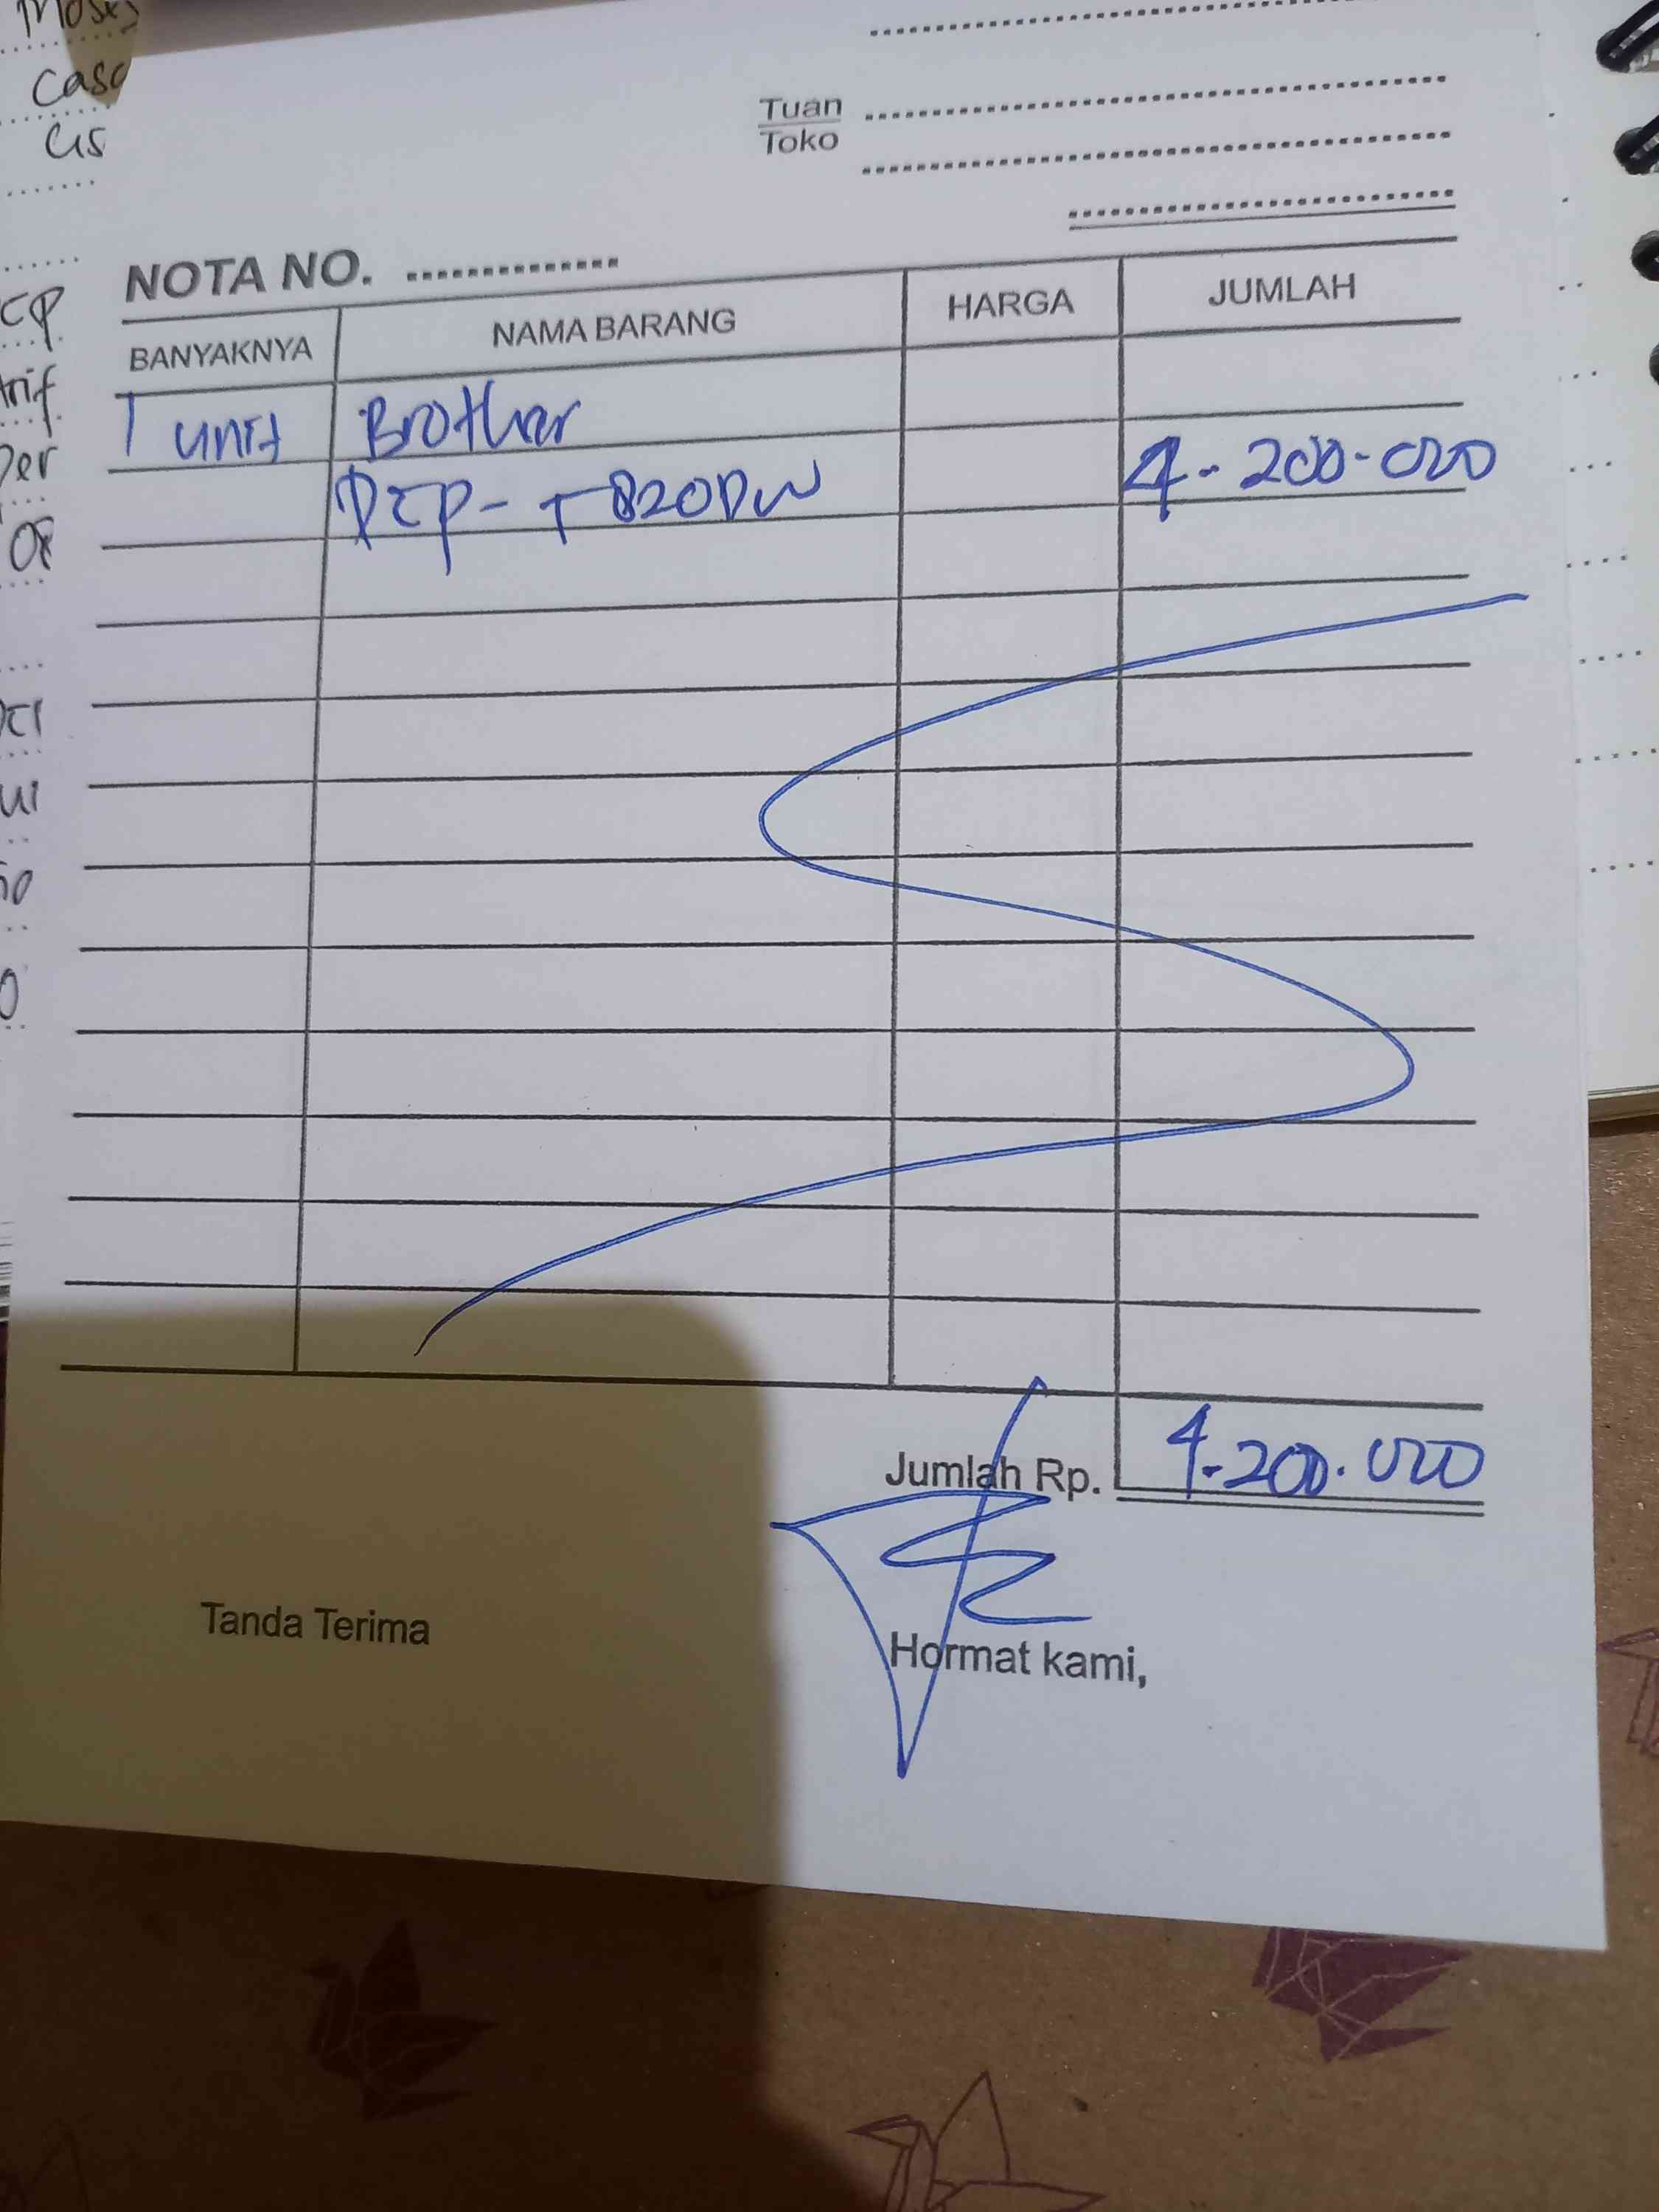 Casa
Tuan
Toko
NOTA NO.
BANYAKNYA NAMA BARANG HARGA JUMLAH
1 unit Brother
DCP-T820DW 4.200.000
Jumlah Rp. 4.200.000
Tanda Terima
Hormat kami,